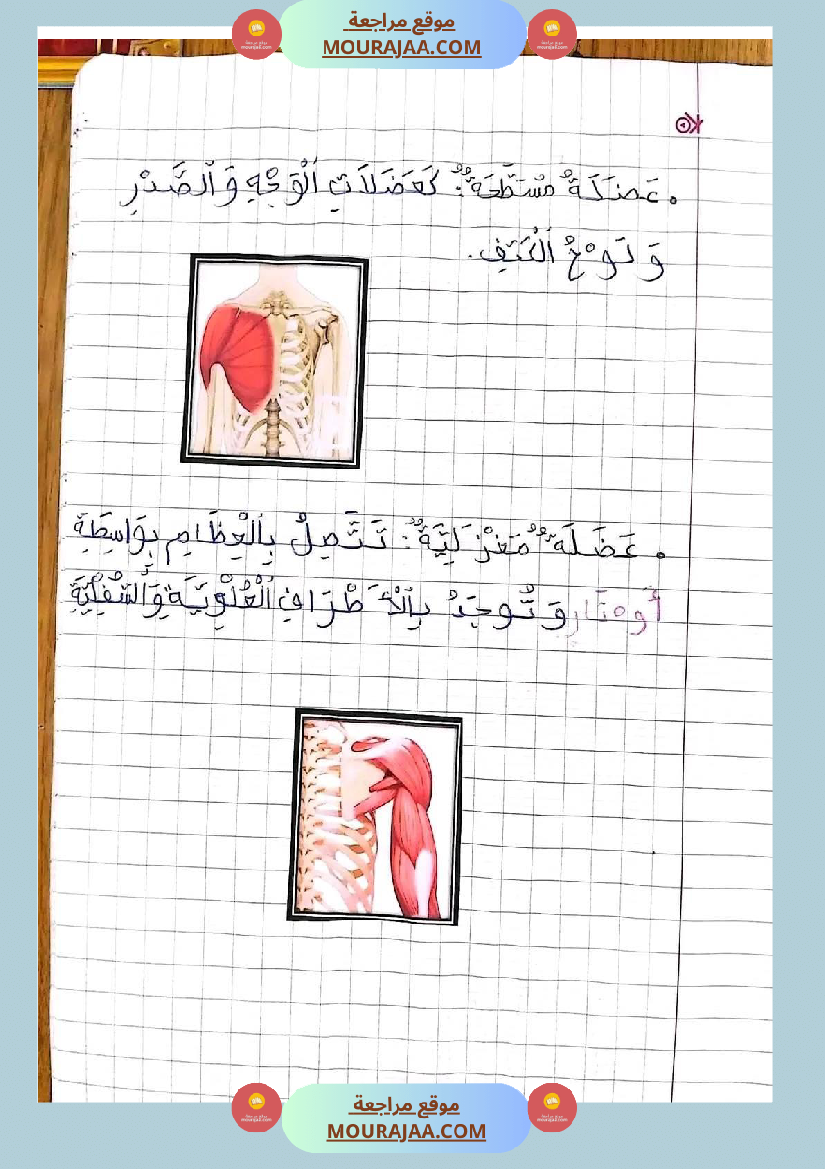 موقع مراجعة
MOURAJAA.COM
• عَضَلَةٌ مُسَطَّحَةٌ: كَعَضَلَاتِ اَلْوَجْهِ وَ اَلصَّدْرِ
وَ لَوْحُ اَلْكَتِفِ.
• عَضَلَةٌ مَغْزَلِيَّةٌ: تَتَّصِلُ بِالْعِظَامِ بِوَاسِطَةِ
أَوْتَارٍ وَ تُوجَدُ بِالْأَطْرَافِ اَلْعُلْوِيَّةِ وَالسُّفْلِيَّةِ
موقع مراجعة
MOURAJAA.COM